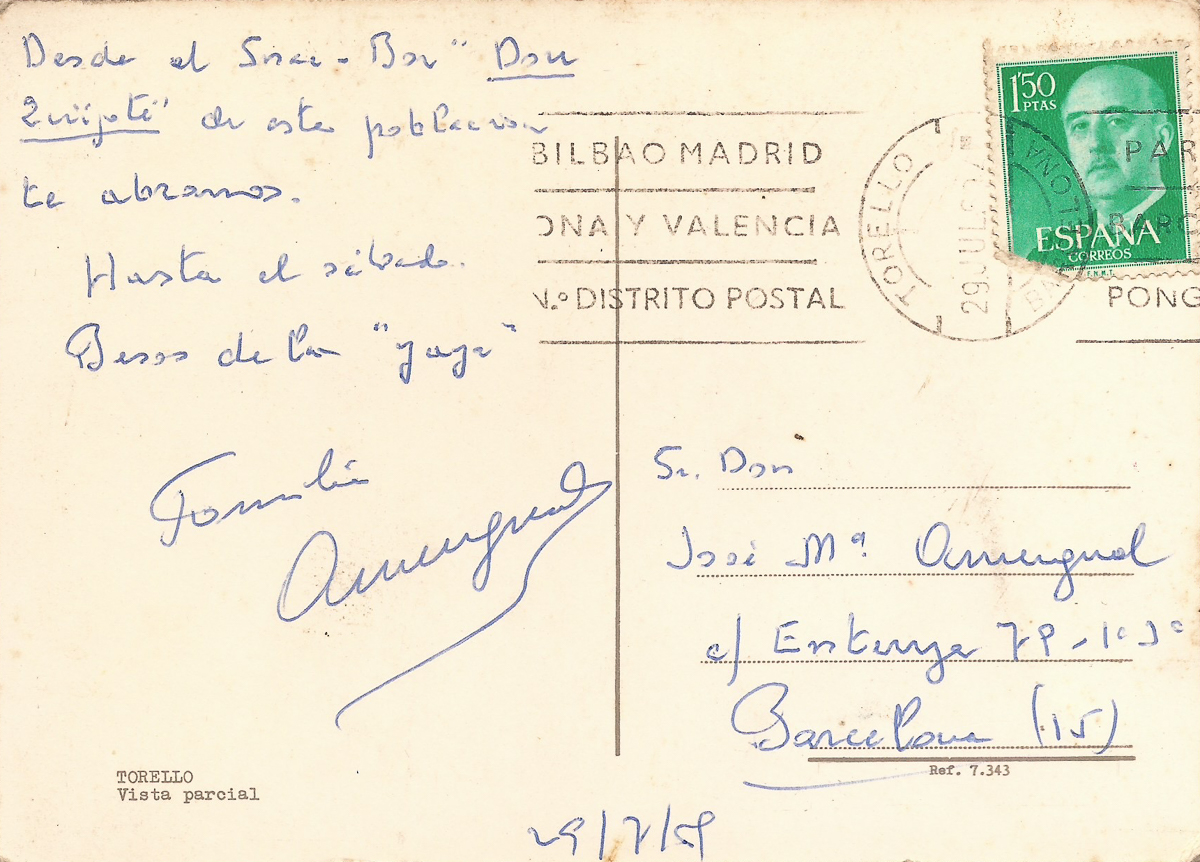 Desde el Snac-Bar "Don
Quijote" de esta población
te abrazamos.
Hasta el sábado.
Besos de la "yaya"
Familia
Amengual
TORELLO
Vista parcial
29/7/69
1'50
PTAS
ESPAÑA
CORREOS
F.N.M.T.
BILBAO MADRID
ONA Y VALENCIA
N.º DISTRITO POSTAL
TORELLO
29 JUL
PAR
BARC
PONG
Sr. Don
José Mª Amengual
c/ Entenza 79-1º 3ª
Barcelona (15)
Ref. 7.343